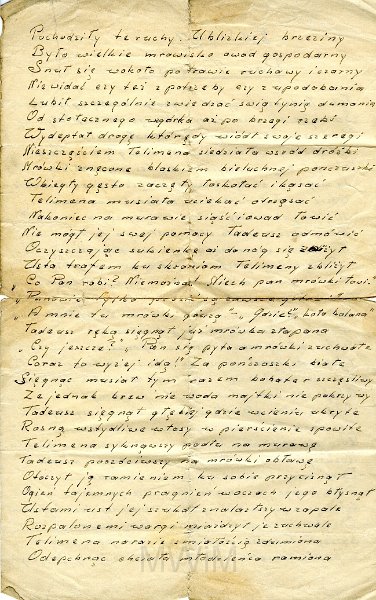 Pochodziły te ruchy. U bliskiej brzeziny
Było wielkie mrowisko owad gospodarny
Snuł się wokoło po trawie ruchawy i czarny
Nie widać czy też z potrzeby czy z upodobania
Lubił szczególnie zwiedzać świątynię dumania
Od stołecznego wzgórka aż po brzegi rzeki
Wydeptał drogę którędy wiódł swoje szeregi
Nieszczęściem Telimena siedziała wśród dróżki
Mrówki znęcone blaskiem bieluchnej pończuszki
Wbiegły gęsto zaczęły łaskotać i kąsać
Telimena musiała uciekać otrząsać
Nakoniec na murawie siąść i owad łowić
Nie mógł jej swej pomocy Tadeusz odmówić
Oczyszczając sukienkę aż do nóg się zniżył
Usta trafem ku skroniom Telimeny zbliżył
„Co Pan robi? Niemożna! Niech pan mrówki łowi"
„Panowie tylko
„A mnie tu mrówki gdzieś" – „Gdzie?" „Koło kolana"
Tadeusz ręką sięgnął już mrówka złapana
„Czy jeszcze?" „Pan się pyta a mrówki zuchwałe
Coraz to wyżej idą!" Za pończoszki białe
Sięgnąć musiał tym razem bohater szczęśliwy
Że jednak krew nie woda majtki nie pokrywy
Tadeusz sięgnął głębiej gdzie w cieniu ukryte
Rosną wstydliwe włosy w pierścienie spowite
Telimena syknąwszy padła na murawę
Tadeusz puściwszy na mrówki obławę
Otoczył ją ramieniem ku sobie przycisnął
Ogień tajemnych pragnień w oczach jego błysnął
Ustami ust jej szukał znalazłszy w zapale
Rozpalonemi wargi miażdżył je zuchwale
Telimena narazie śmiałością zdumiona
Odepchnąć chciała młodzieńca ramiona